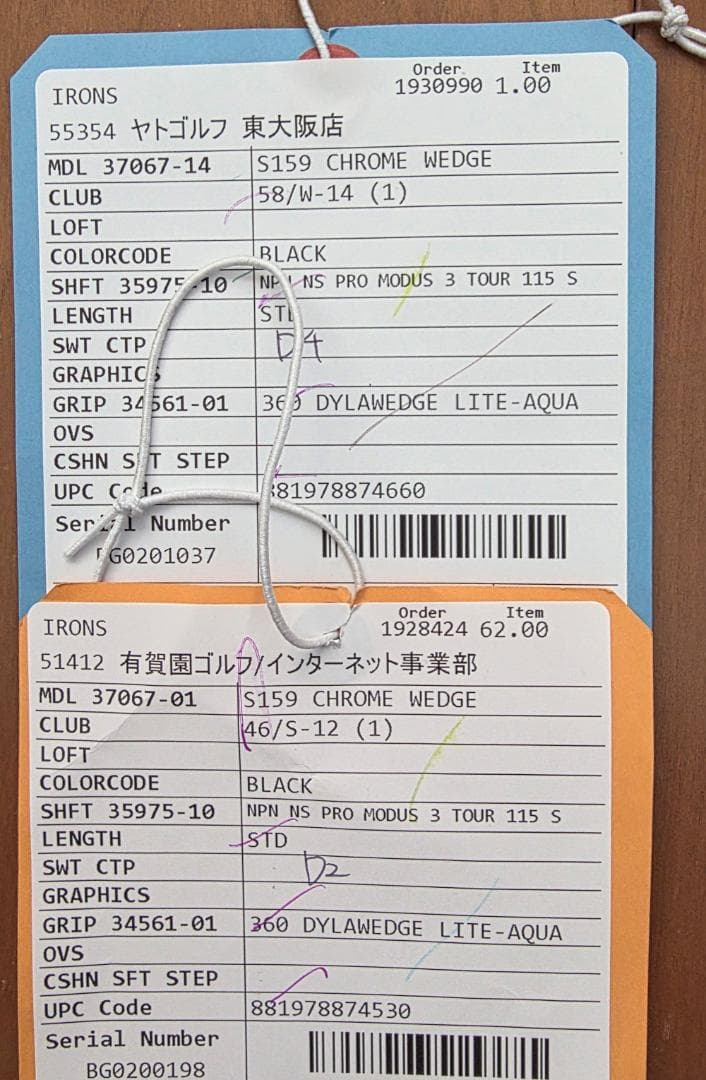 Order Item
IRONS 1930990 1.00
55354 ヤトゴルフ 東大阪店
MDL 37067-14 S159 CHROME WEDGE
CLUB 58/W-14 (1)
LOFT
COLORCODE BLACK
SHFT 35975-10 NPN NS PRO MODUS 3 TOUR 115 S
LENGTH STD
SWT CTP D4
GRAPHICS
GRIP 34561-01 360 DYLAWEDGE LITE-AQUA
OVS
CSHN SFT STEP
UPC Code 881978874660
Serial Number
BG0201037
Order Item
IRONS 1928424 62.00
51412 有賀園ゴルフ/インターネット事業部
MDL 37067-01 S159 CHROME WEDGE
CLUB 46/S-12 (1)
LOFT
COLORCODE BLACK
SHFT 35975-10 NPN NS PRO MODUS 3 TOUR 115 S
LENGTH STD
SWT CTP D2
GRAPHICS
GRIP 34561-01 360 DYLAWEDGE LITE-AQUA
OVS
CSHN SFT STEP
UPC Code 881978874530
Serial Number
BG0200198